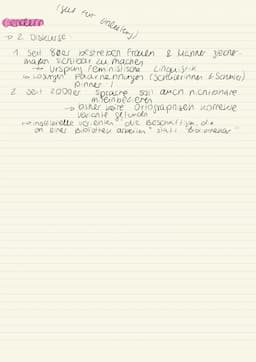 (gut für
Einleitung)
Gendern
→ 2 Diskurse:
1. Seit 80er bestreben Frauen & Männer gleicher-
maßen sichtbar zu machen
→ Ursprung feministische Linguistik
↳ Lösungen Paarnennungen (Schülerinnen & Schüler)
Binnen I
2. Seit 2000er Sprache soll auch nichtbinäre
miteinbeziehen
→ bisher keine Orthographisch korrekte
Variante gefunden
die Beschäftigten, die
an einer Bibliothek arbeiten" statt Bibliothekar